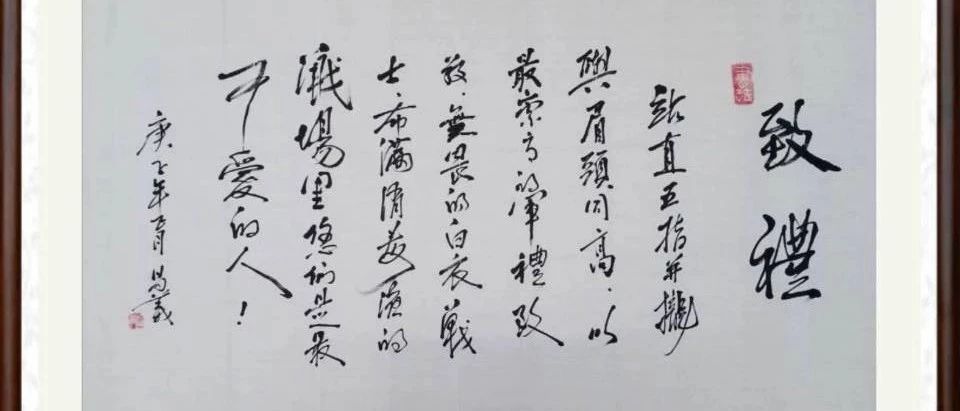 致禮
站直五指并攏
與眉頭同高，以
最崇高的軍禮致
敬，無畏的白衣戰
士，布滿消毒液的
戰場里您们是最
可愛的人！
庚子年月義